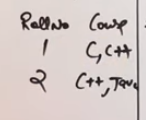 RollNo Course
1 C, C++
2 C++, Java